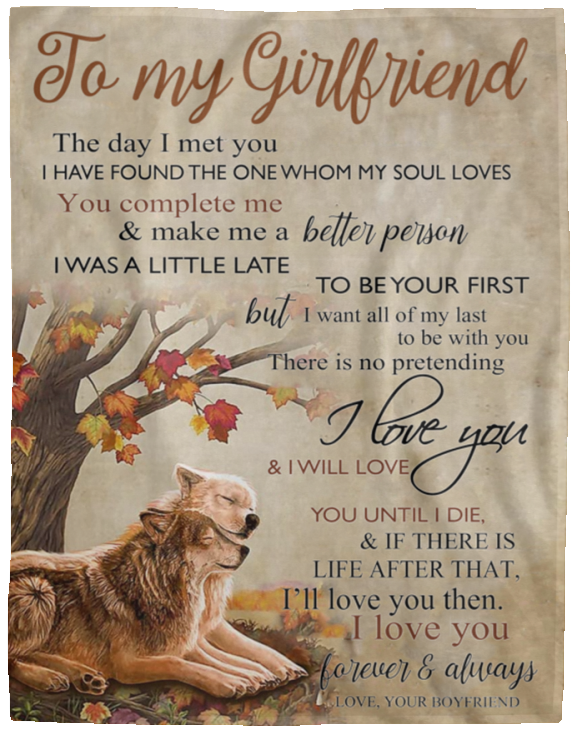 To my Girlfriend
The day I met you
I HAVE FOUND THE ONE WHOM MY SOUL LOVES
You complete me
& make me a better person
I WAS A LITTLE LATE
TO BE YOUR FIRST
but I want all of my last
to be with you
There is no pretending
I love you
& I WILL LOVE
YOU UNTIL I DIE,
& IF THERE IS
LIFE AFTER THAT,
I'll love you then.
I love you
forever & always
LOVE, YOUR BOYFRIEND